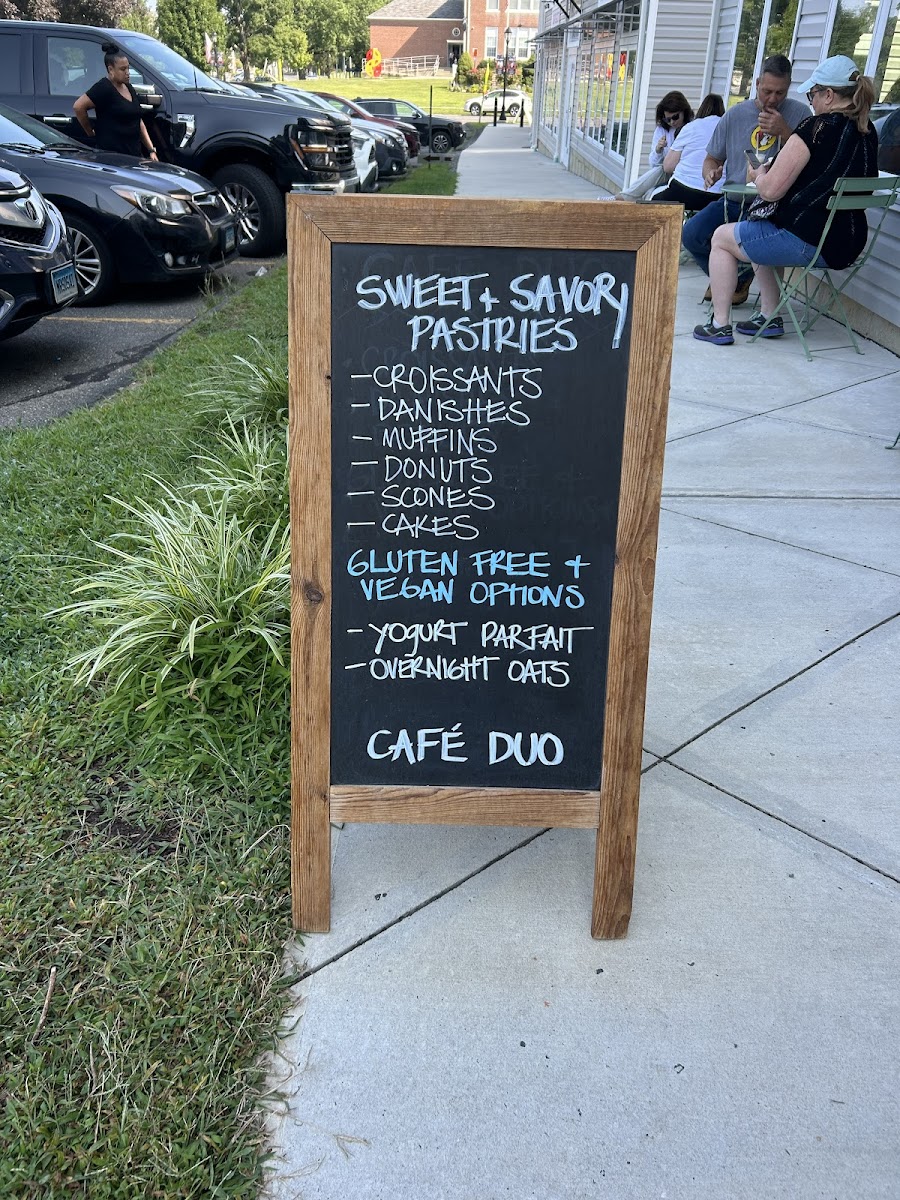 SWEET + SAVORY
PASTRIES
- CROISSANTS
- DANISHES
- MUFFINS
- DONUTS
- SCONES
- CAKES
GLUTEN FREE +
VEGAN OPTIONS
- YOGURT PARFAIT
- OVERNIGHT OATS
CAFÉ DUO